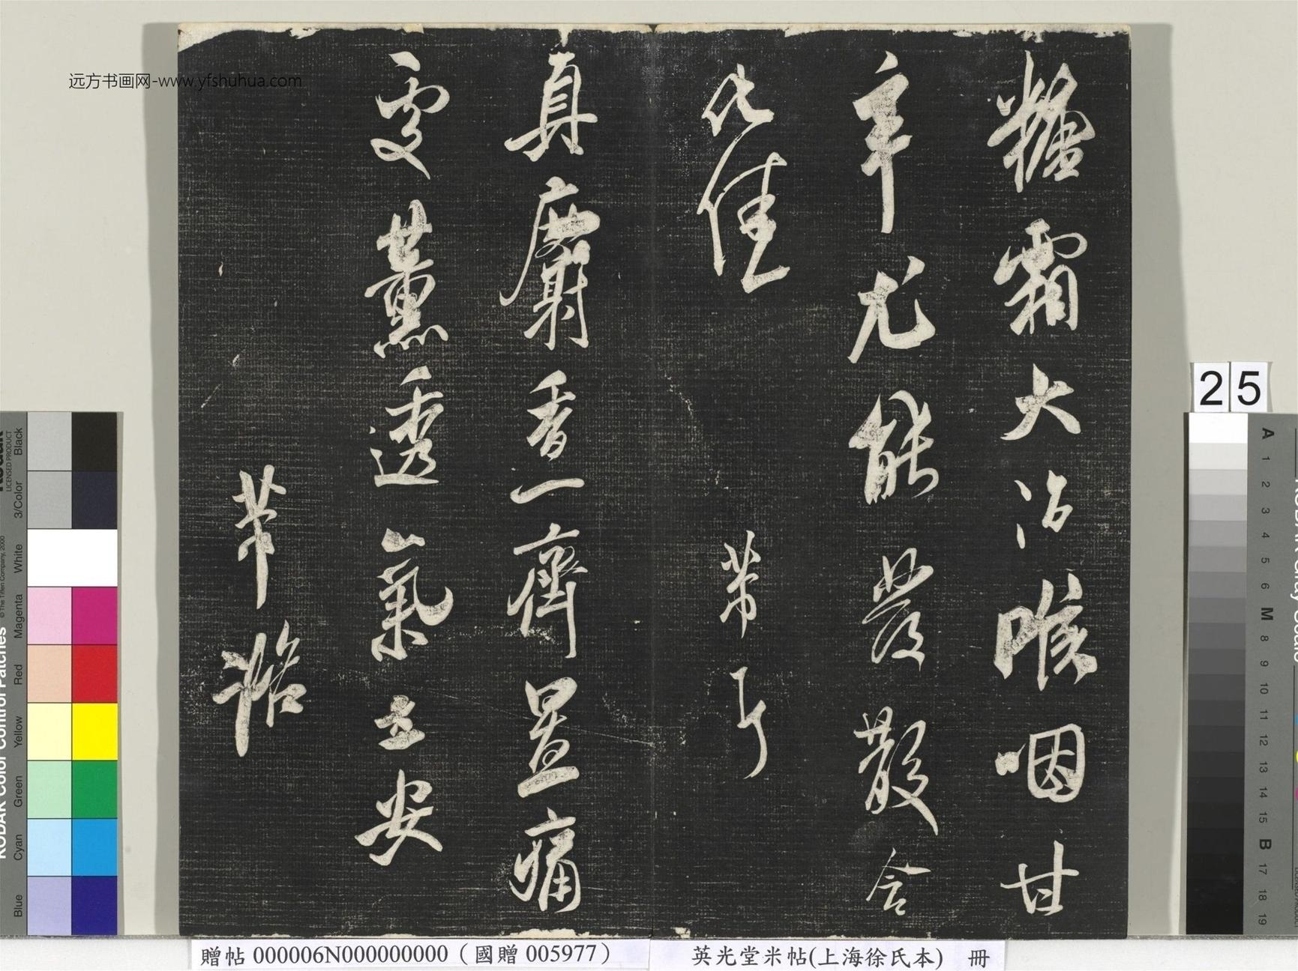 糖霜大治喉咽甘
辛尤能發散含
化佳
芾頁
真麝香一齊置痛
處薰透氣立安
芾
远方书画网-www.yfshuhua.com
25
贈帖 000006N000000000（國贈 005977）
英光堂米帖(上海徐氏本) 冊
KODAK Color Control Patches
Blue
Cyan
Green
Yellow
Red
Magenta
White
3/Color
Black
A 1 2 3 4 5 6 M 8 9 10 11 12 13 14 15 B 17 18 19